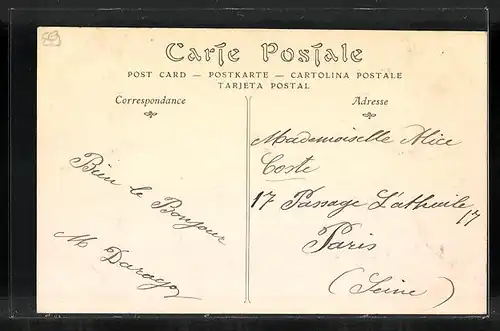 Carte Postale
POST CARD — POSTKARTE — CARTOLINA POSTALE
TARJETA POSTAL
Correspondance
Adresse
Bien le Bonjour
M Darago
Mademoiselle Alice
Coste
17 Passage Lathuile 17
Paris
(Seine)